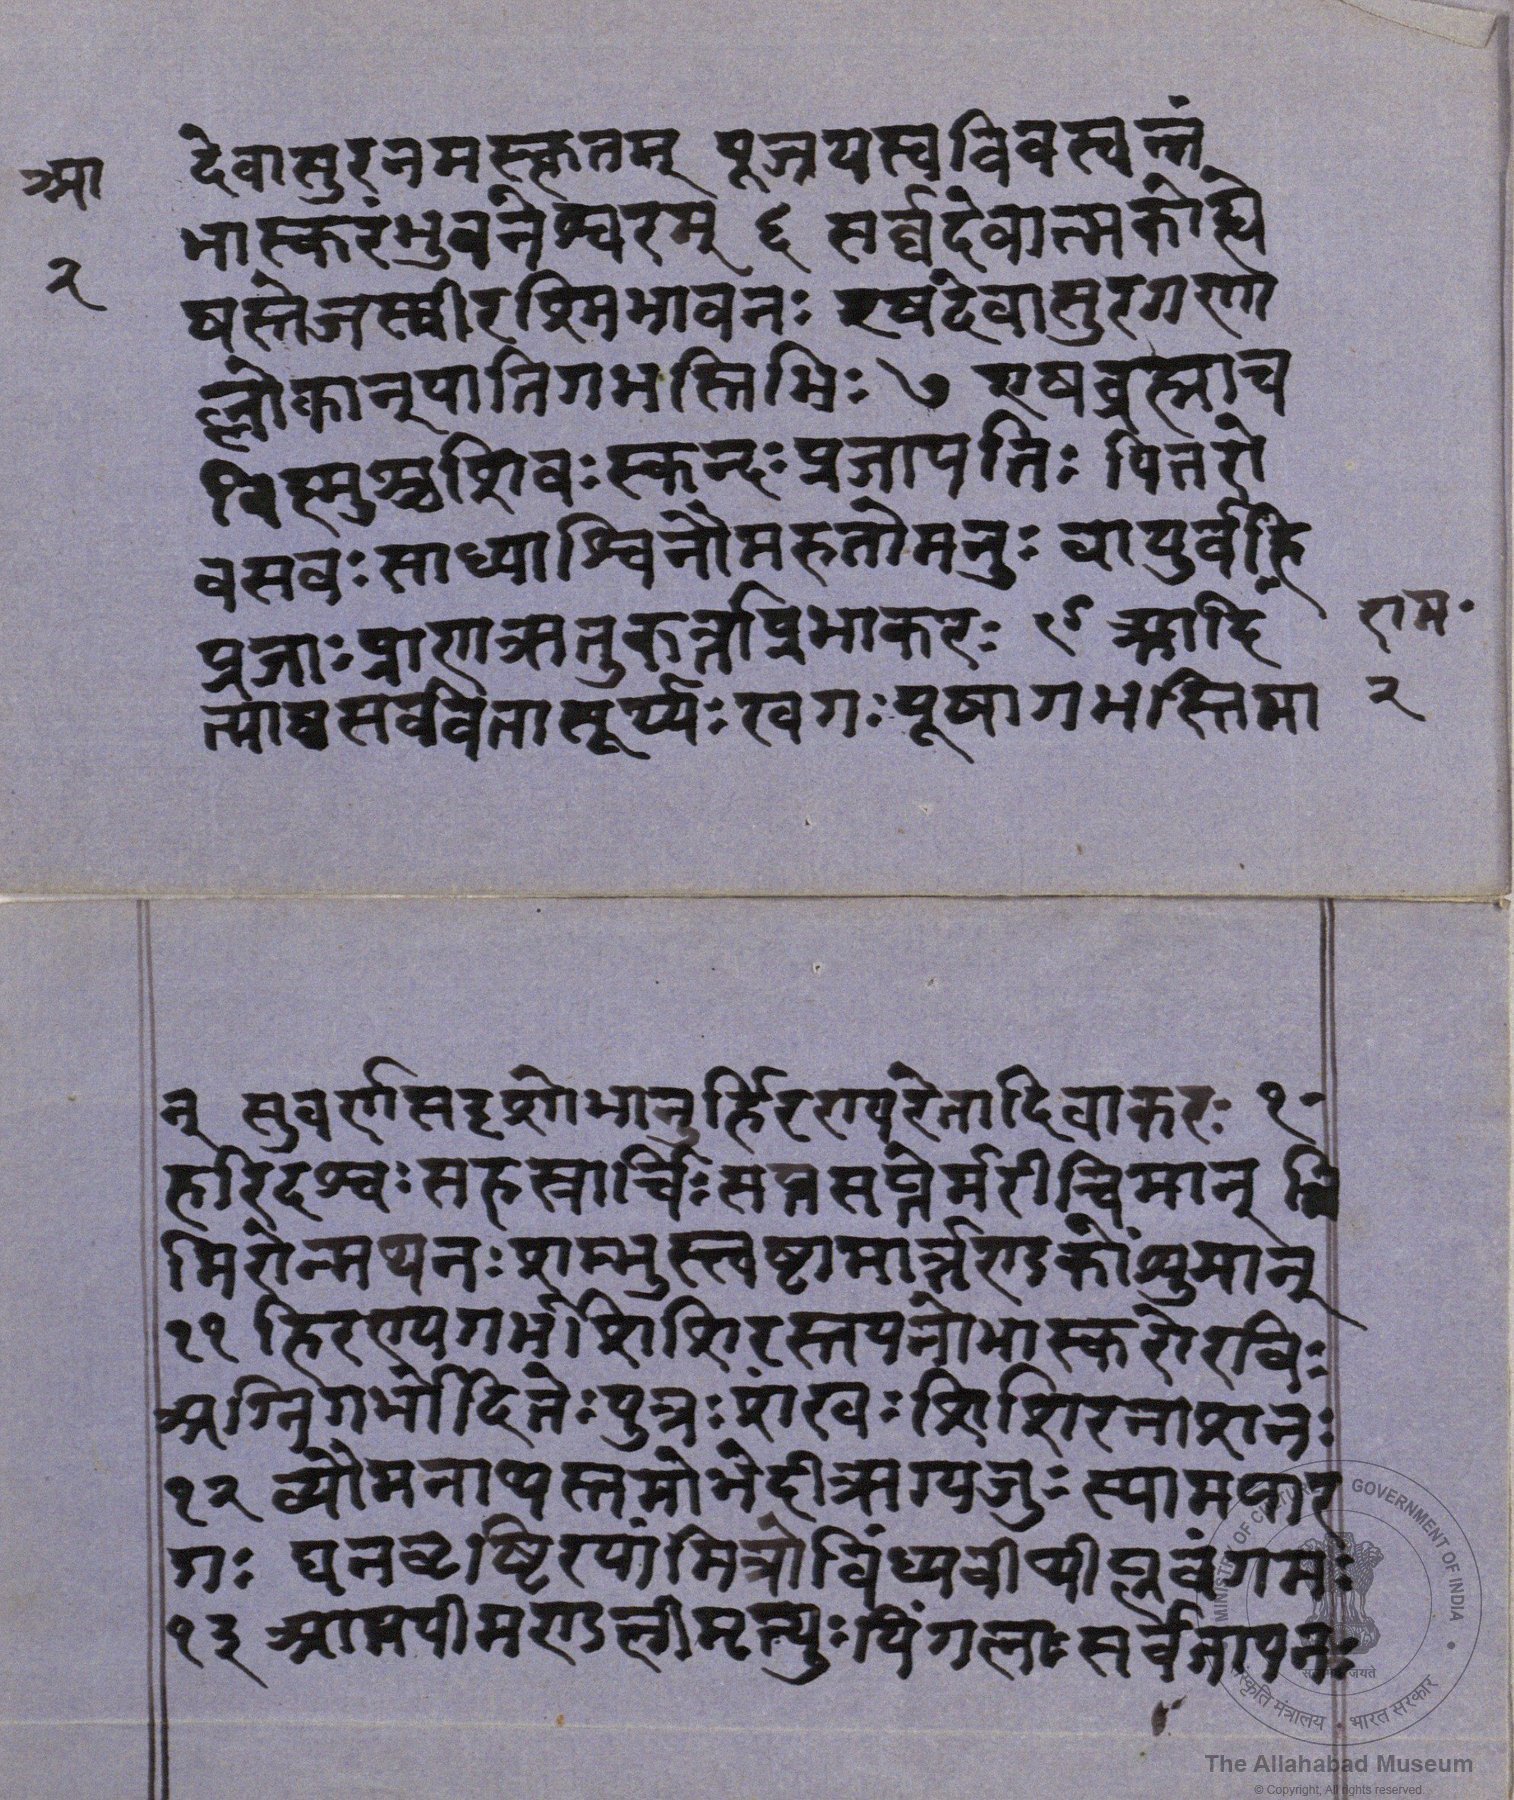 आ
२
देवासुरनमस्कृतम् पूजयस्वविवस्वन्तं
भास्करंभुवनेश्वरम् ६ सर्व्वदेवात्मकोह्ये
षस्तेजस्वीरश्मिभावनः एषदेवासुरगणा
ल्लोकान्पातिगभस्तिभिः ७ एषब्रह्माच
विष्णुश्चशिवःस्कन्दःप्रजापतिः पितरो
वसवःसाध्याश्विनौमरुतोमनुः वायुर्वह्नि
प्रजाःप्राणऋतुकर्त्ताप्रभाकरः ९ आदि
त्यःसविता सूर्य्यःखगःपूषागभस्तिमा
राम॰
२
न् सुवर्णसदृशोभानुर्हिरण्यरेतादिवाकरः १॰
हरिदश्वःसहस्रार्चिःसप्तसप्तिर्मरीचिमान् ति
मिरोन्मथनःशम्भुस्त्वष्टामार्त्तण्डकोंशुमान्
११ हिरण्यगर्भःशिशिरस्तपनोभास्करोरविः
अग्निगर्भोदितेःपुत्रःशंखःशिशिरनाशनः
१२ व्योमनाथस्तमोभेदीऋग्यजुःस्यामपार
गः घनवृष्टिरपांमित्रोविंध्यवीथीप्लवंगमः
१३ आतपीमण्डलीमृत्युःपिंगलःसर्वतापनः
MINISTRY OF CULTURE GOVERNMENT OF INDIA
सत्यमेव जयते
संस्कृति मंत्रालय • भारत सरकार
The Allahabad Museum
© Copyright, All rights reserved.